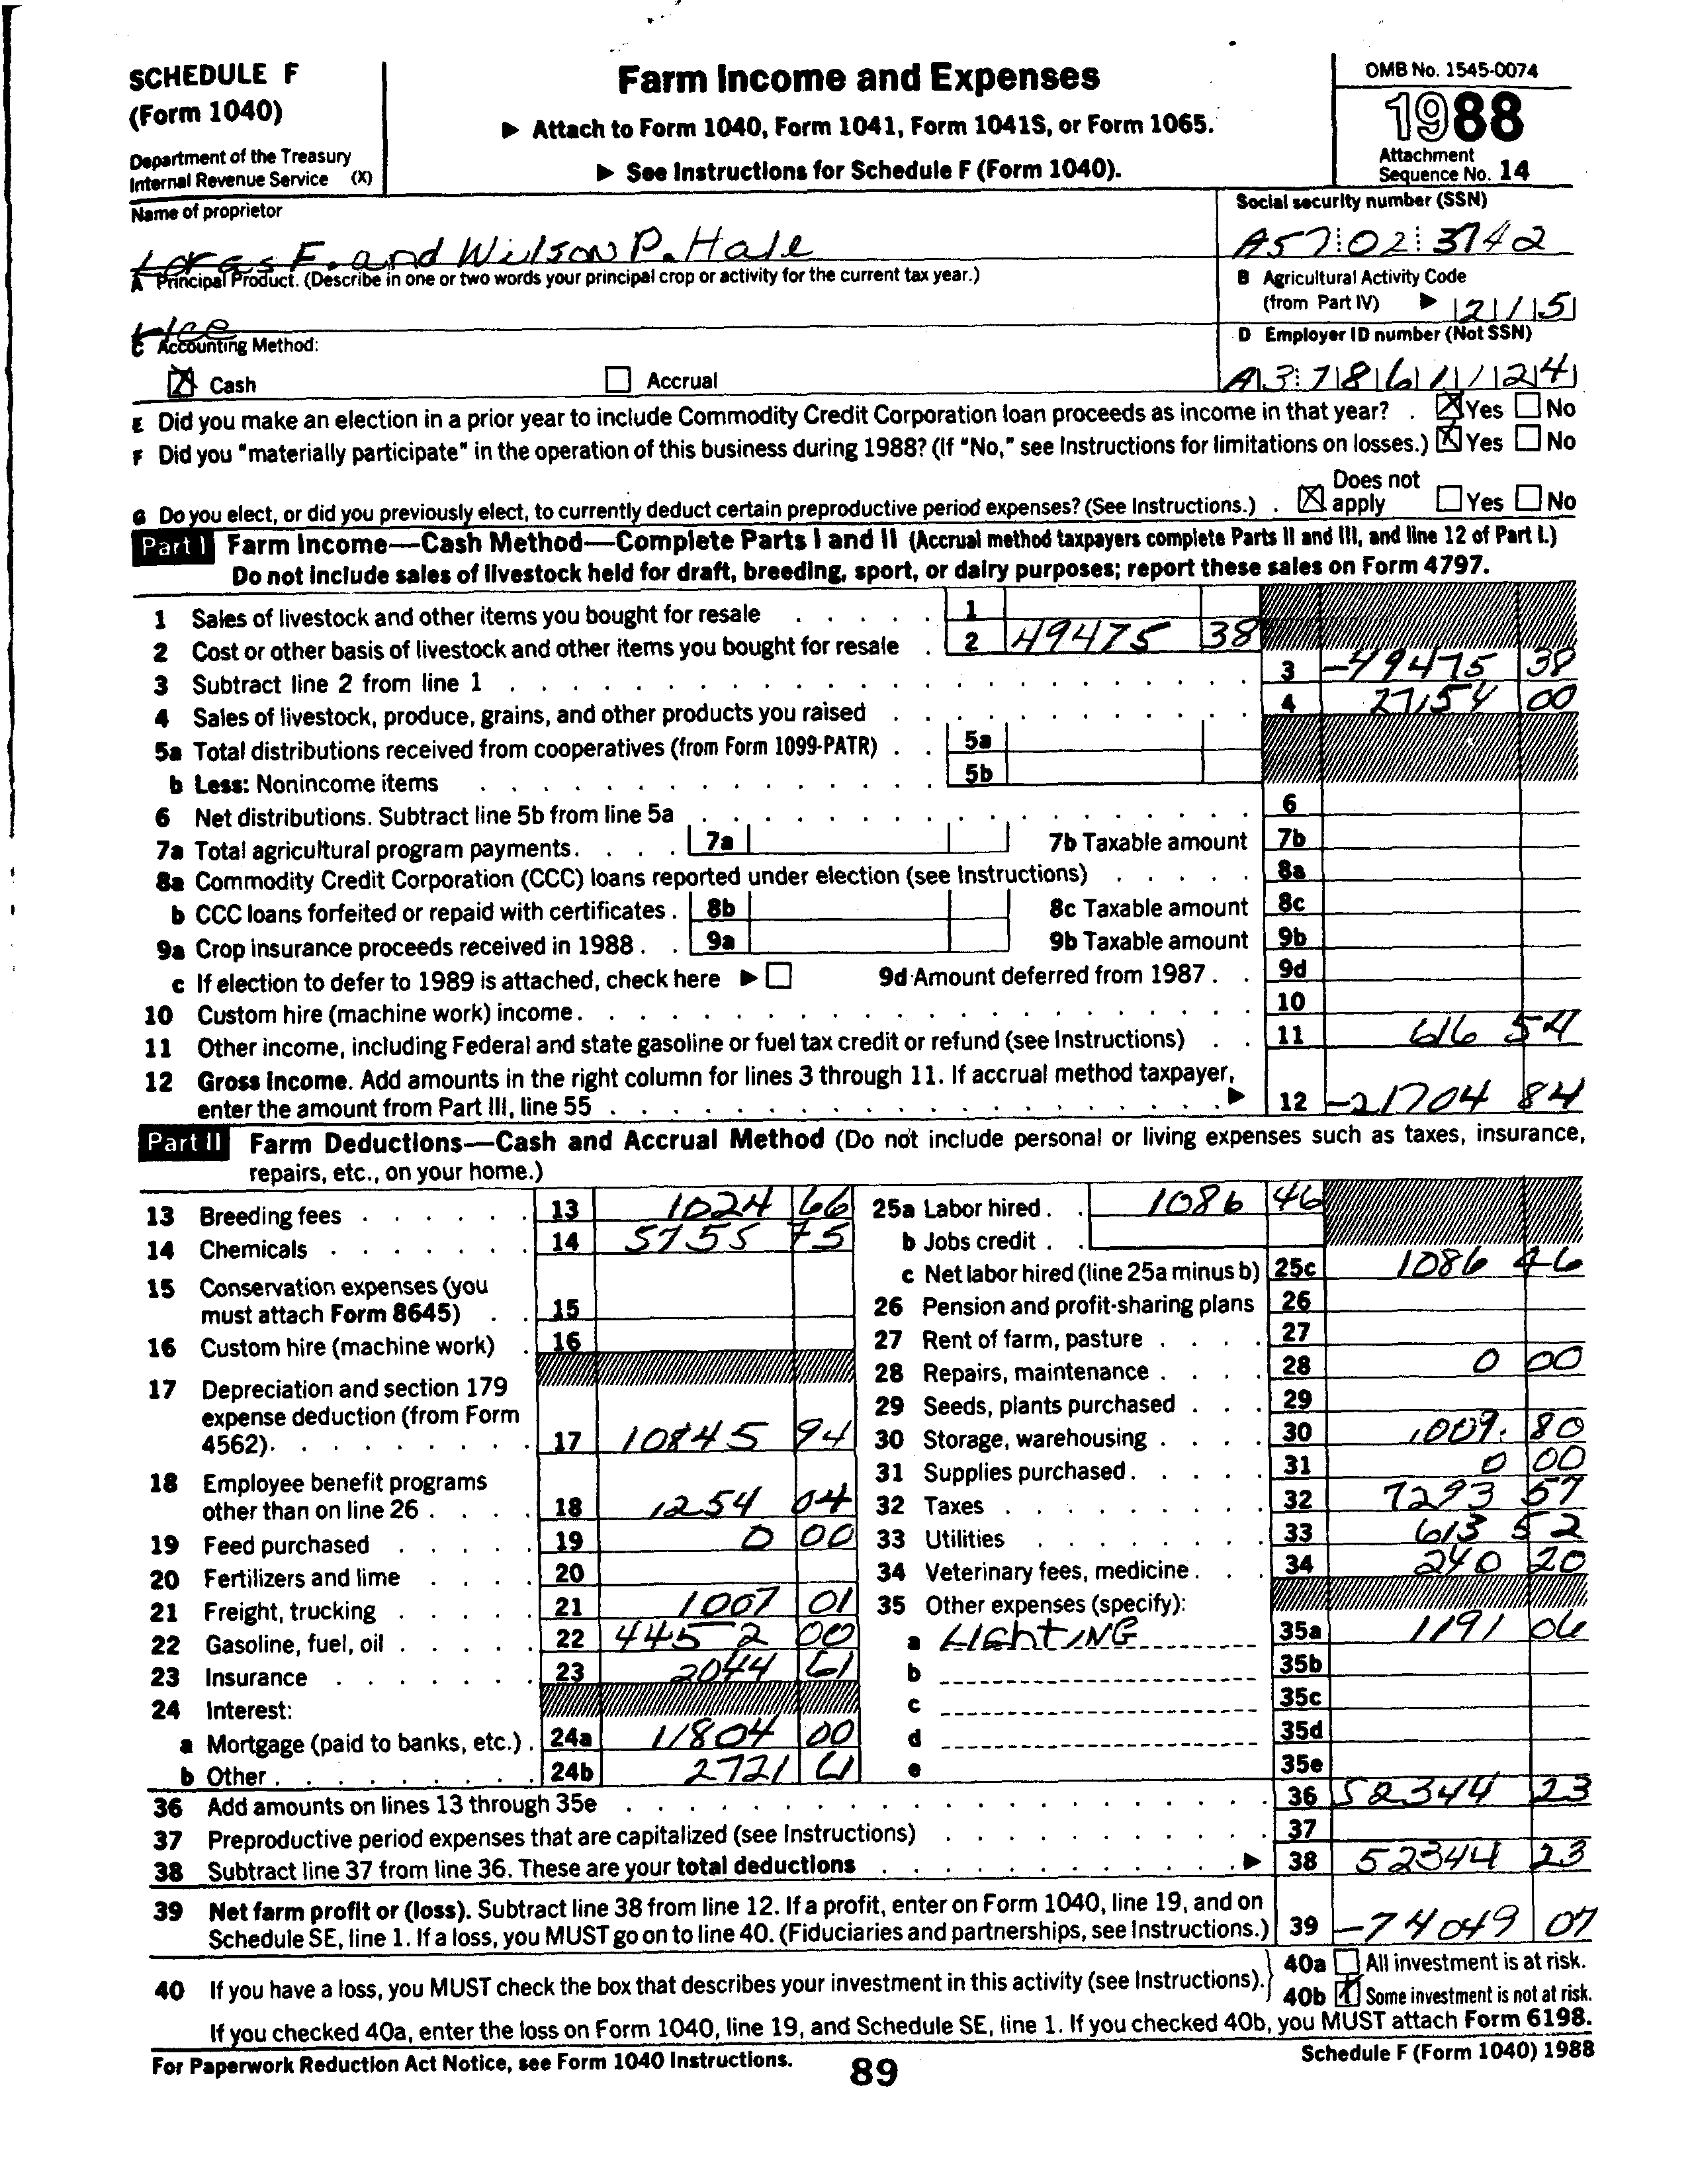 SCHEDULE F
(Form 1040)
Department of the Treasury
Internal Revenue Service (X)
Farm Income and Expenses
▶ Attach to Form 1040, Form 1041, Form 1041S, or Form 1065.
▶ See Instructions for Schedule F (Form 1040).
OMB No. 1545-0074
1988
Attachment
Sequence No. 14
Name of proprietor
F. and Wilson P. Hale
Social security number (SSN)
A57 02 3742
A Principal Product. (Describe in one or two words your principal crop or activity for the current tax year.)
B Agricultural Activity Code
(from Part IV) ▶ 215
C Accounting Method:
Cash Accrual
D Employer ID number (Not SSN)
A37861124
E Did you make an election in a prior year to include Commodity Credit Corporation loan proceeds as income in that year? . Yes No
F Did you "materially participate" in the operation of this business during 1988? (If "No," see Instructions for limitations on losses.) Yes No
G Do you elect, or did you previously elect, to currently deduct certain preproductive period expenses? (See Instructions.) . Does not apply Yes No
Part I Farm Income—Cash Method—Complete Parts I and II (Accrual method taxpayers complete Parts II and III, and line 12 of Part I.)
Do not include sales of livestock held for draft, breeding, sport, or dairy purposes; report these sales on Form 4797.
1 Sales of livestock and other items you bought for resale 1
2 Cost or other basis of livestock and other items you bought for resale 2 49475 38
3 Subtract line 2 from line 1 3 -49475 38
4 Sales of livestock, produce, grains, and other products you raised 4 27154 00
5a Total distributions received from cooperatives (from Form 1099-PATR) 5a
b Less: Nonincome items 5b
6 Net distributions. Subtract line 5b from line 5a 6
7a Total agricultural program payments. 7a 7b Taxable amount 7b
8a Commodity Credit Corporation (CCC) loans reported under election (see Instructions) 8a
b CCC loans forfeited or repaid with certificates . 8b 8c Taxable amount 8c
9a Crop insurance proceeds received in 1988 . 9a 9b Taxable amount 9b
c If election to defer to 1989 is attached, check here ▶ 9d Amount deferred from 1987 . 9d
10 Custom hire (machine work) income. 10
11 Other income, including Federal and state gasoline or fuel tax credit or refund (see Instructions) 11 616 54
12 Gross Income. Add amounts in the right column for lines 3 through 11. If accrual method taxpayer,
enter the amount from Part III, line 55 ▶ 12 -21704 84
Part II Farm Deductions—Cash and Accrual Method (Do not include personal or living expenses such as taxes, insurance,
repairs, etc., on your home.)
13 Breeding fees 13 1024 66
14 Chemicals 14 5755 75
15 Conservation expenses (you
must attach Form 8645) 15
16 Custom hire (machine work) 16
17 Depreciation and section 179
expense deduction (from Form
4562). 17 10845 94
18 Employee benefit programs
other than on line 26 18 1254 04
19 Feed purchased 19 0 00
20 Fertilizers and lime 20
21 Freight, trucking 21 1007 01
22 Gasoline, fuel, oil 22 4452 00
23 Insurance 23 2044 61
24 Interest:
a Mortgage (paid to banks, etc.) . 24a 11804 00
b Other 24b 2721 61
25a Labor hired . 1086 46
b Jobs credit .
c Net labor hired (line 25a minus b) 25c 1086 46
26 Pension and profit-sharing plans 26
27 Rent of farm, pasture 27
28 Repairs, maintenance 28 0 00
29 Seeds, plants purchased 29
30 Storage, warehousing 30 1009. 80
31 Supplies purchased 31 0 00
32 Taxes 32 7293 57
33 Utilities 33 613 52
34 Veterinary fees, medicine 34 240 20
35 Other expenses (specify):
a LIGHTING 35a 1191 06
b 35b
c 35c
d 35d
e 35e
36 Add amounts on lines 13 through 35e 36 52344 23
37 Preproductive period expenses that are capitalized (see Instructions) 37
38 Subtract line 37 from line 36. These are your total deductions ▶ 38 52344 23
39 Net farm profit or (loss). Subtract line 38 from line 12. If a profit, enter on Form 1040, line 19, and on
Schedule SE, line 1. If a loss, you MUST go on to line 40. (Fiduciaries and partnerships, see Instructions.) 39 -74049 07
40 If you have a loss, you MUST check the box that describes your investment in this activity (see Instructions).
40a All investment is at risk.
40b Some investment is not at risk.
If you checked 40a, enter the loss on Form 1040, line 19, and Schedule SE, line 1. If you checked 40b, you MUST attach Form 6198.
For Paperwork Reduction Act Notice, see Form 1040 Instructions.
89
Schedule F (Form 1040) 1988